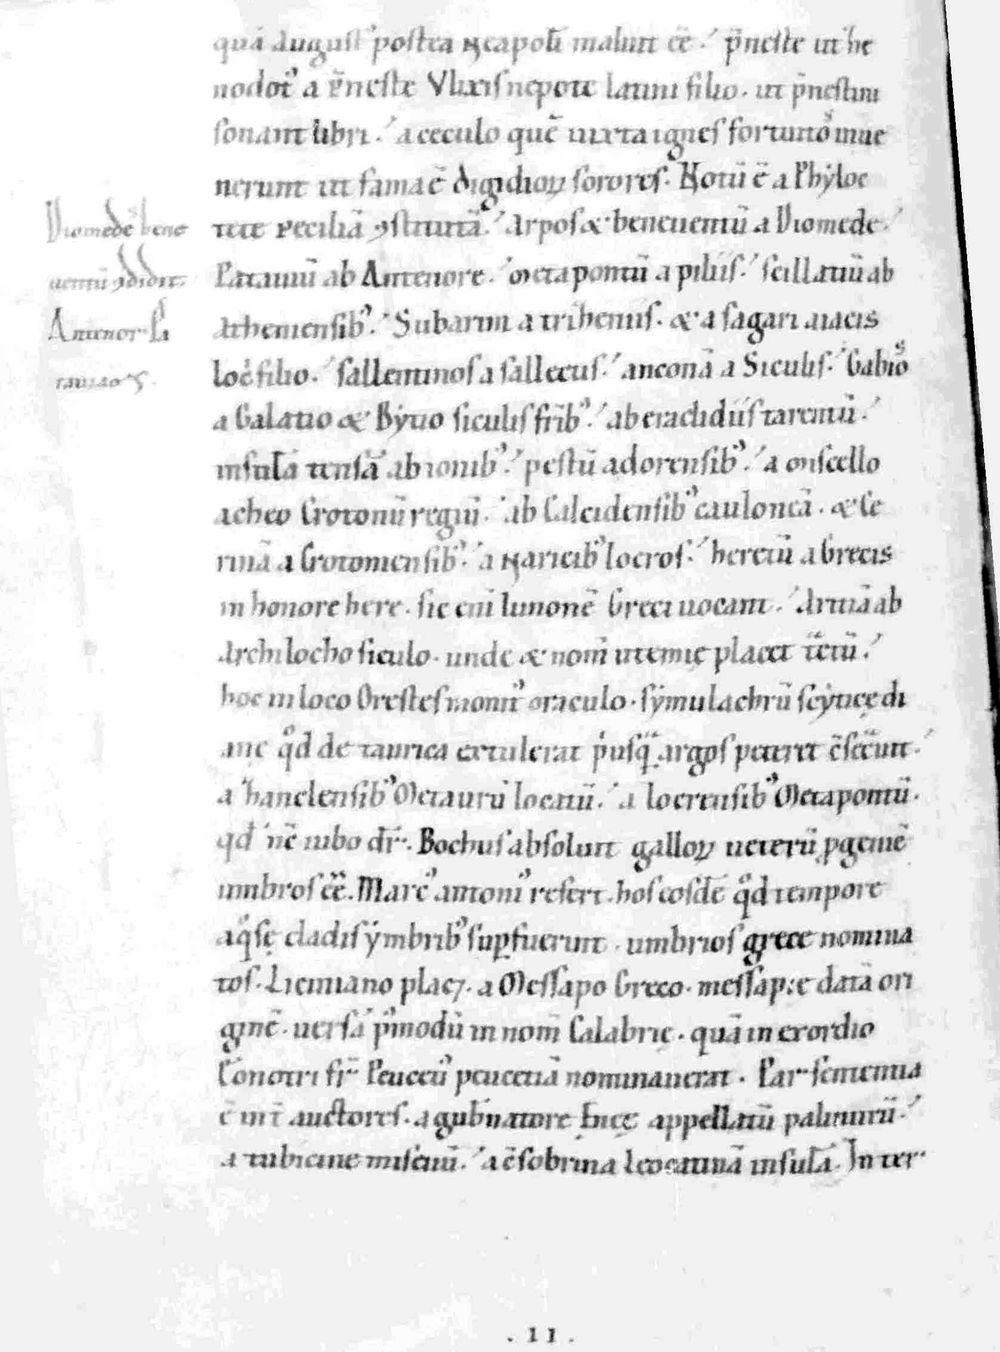 quā August' postea Neapolī maluit eē. p̄neste ut he
nodot' a P̄neste Vlixis nepote latini filio. ut p̄nestini
sonant libri. a ceculo quē iuxta ignes fortuito inue
nerunt ut fama ē digidioꝝ sorores. Notū ē a Phyloc
tete Peciliā ꝯstitutā. Arpos & beneuentū a Diomede.
Patauiū ab Antenore. Metapontū a piliis. scillatiū ab
Atheniensib'. Subarim a triheniis. & a sagari aiacis
locͥ filio. sallentinos a sallecus. anconā a Siculis. Gabios
a Galatio & Bytio siculis fr̄ib'. ab eraclidiis tarentū.
insulā tensā ab ionib'. pestū a dorensib'. a miscello
acheo Crotonū regiū. ab Calcidensib' cauloneā. & Te
rinā a Crotoniensib'. a Naricib' locros. heretū a Grecis
in honore here. sic eni Iunonē Greci uocant. Aritiā ab
Archilocho siculo. unde & nom̄ ut emię placet tētū.
hoc in loco Orestes monit' oraculo. symulachrū scyticę di
anę qd̊ de taurica extulerat p̍usq̄ argos peteret ꝯsecr̄uit.
a hanclensib' Metaurū locatū. a locrensib' Metapontū.
qd̄ nc̄ uibo dr̄. Bochus absoluit galloꝝ ueterū ꝓgeniē
umbros eē. Marc' antoni' refert. hos eosdē qd̊ tempore
aq̊sę cladis ymbrib' suꝑfuerunt. umbrios grece nomina
tos. Liciniano plac&. a Messapo Greco. messapie datā ori
ginē. uersā p'modū in nom̄ Calabrię. quā in exordio
Oenotri fr̄ Peuceti' peucetiā nominauerat. Par sententia
ē int̄ auctores. a gub̄natore Enęę appellatū palinurū.
a tubicine misenū. a ꝯsobrina leocatinā insulā. Inter
Diomedes bene
uentū ꝯdidit.
Antenor Pa
tauiaos.
. 11 .